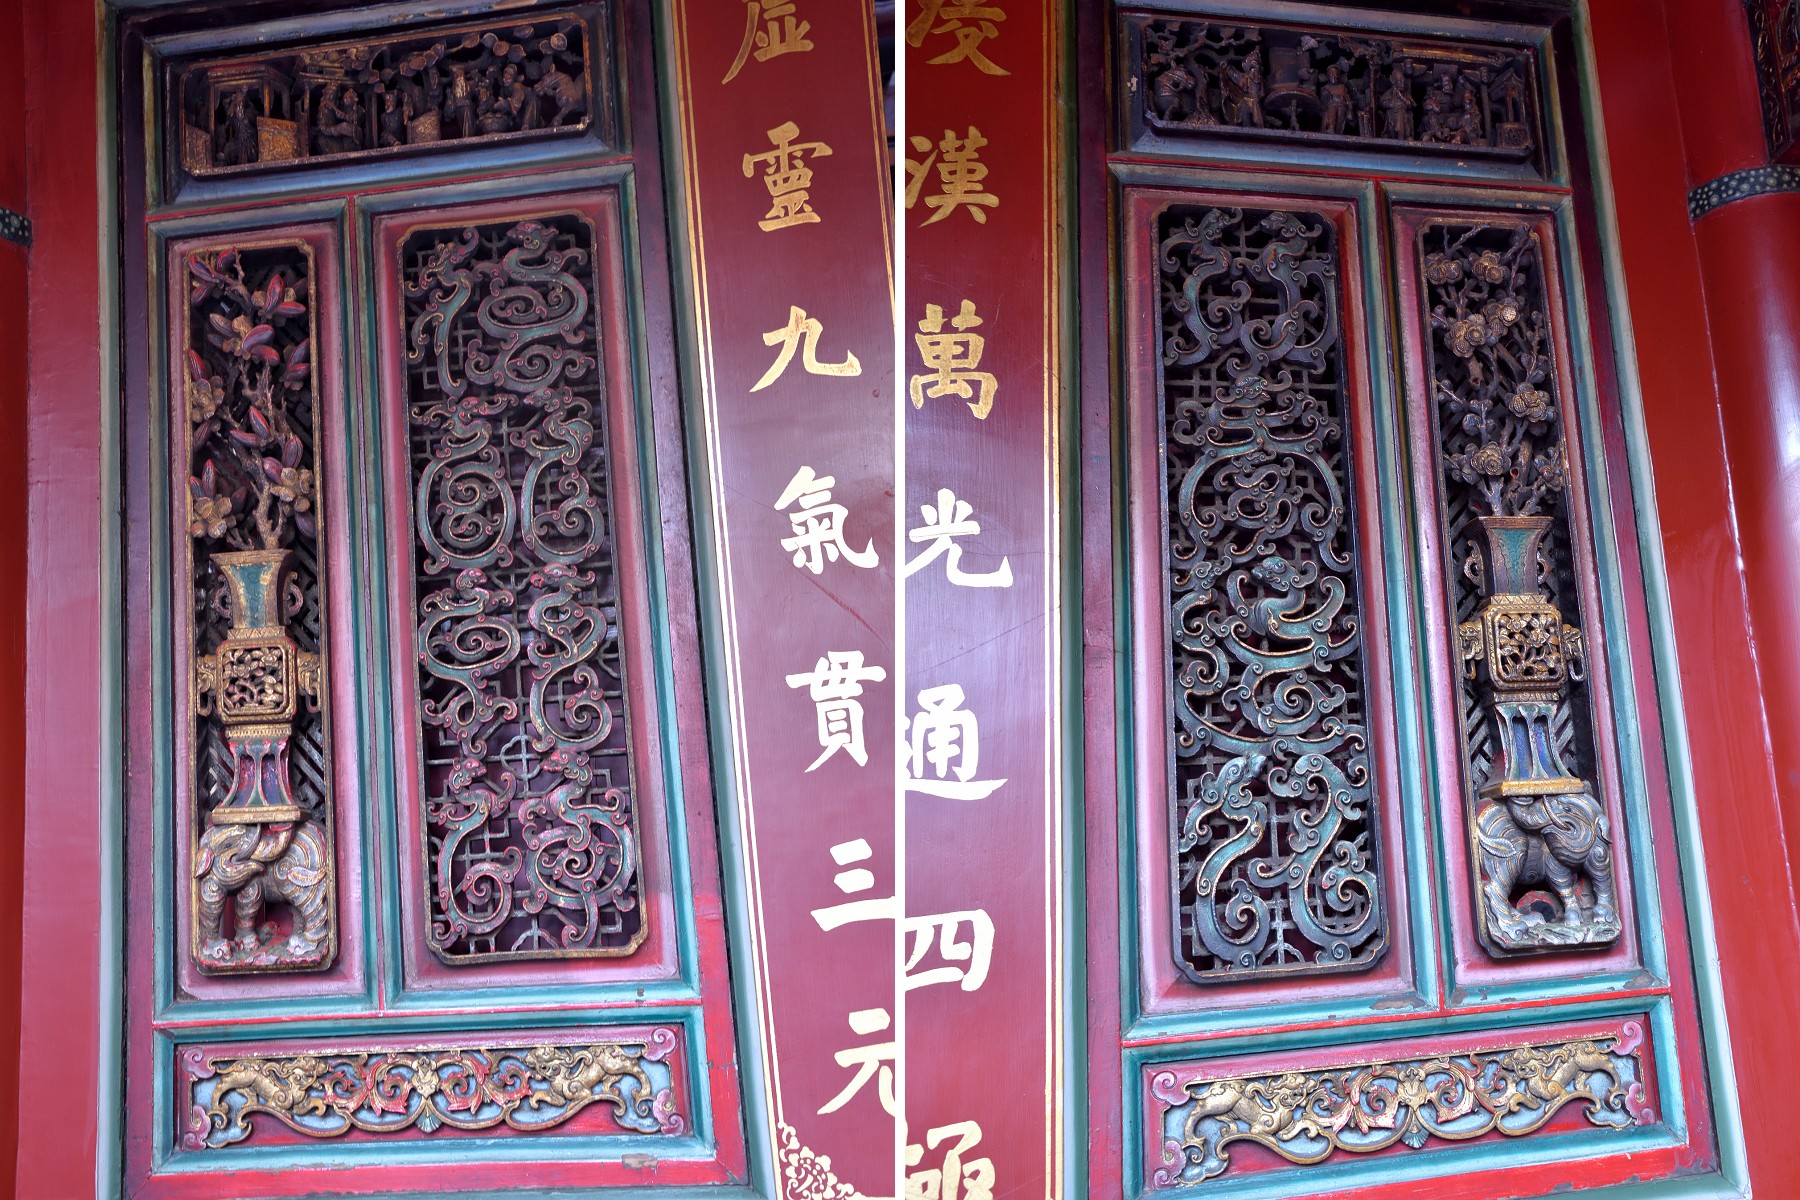 漢萬光通四極
虛靈九氣貫三元